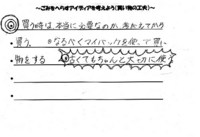 ～ごみをへらすアイディアを考えよう(買い物の工夫)～
買う時は、本当に必要なのか、考えてから
買う。 なるべくマイバックを使って買い
物をする 安くてもちゃんと大切に使う